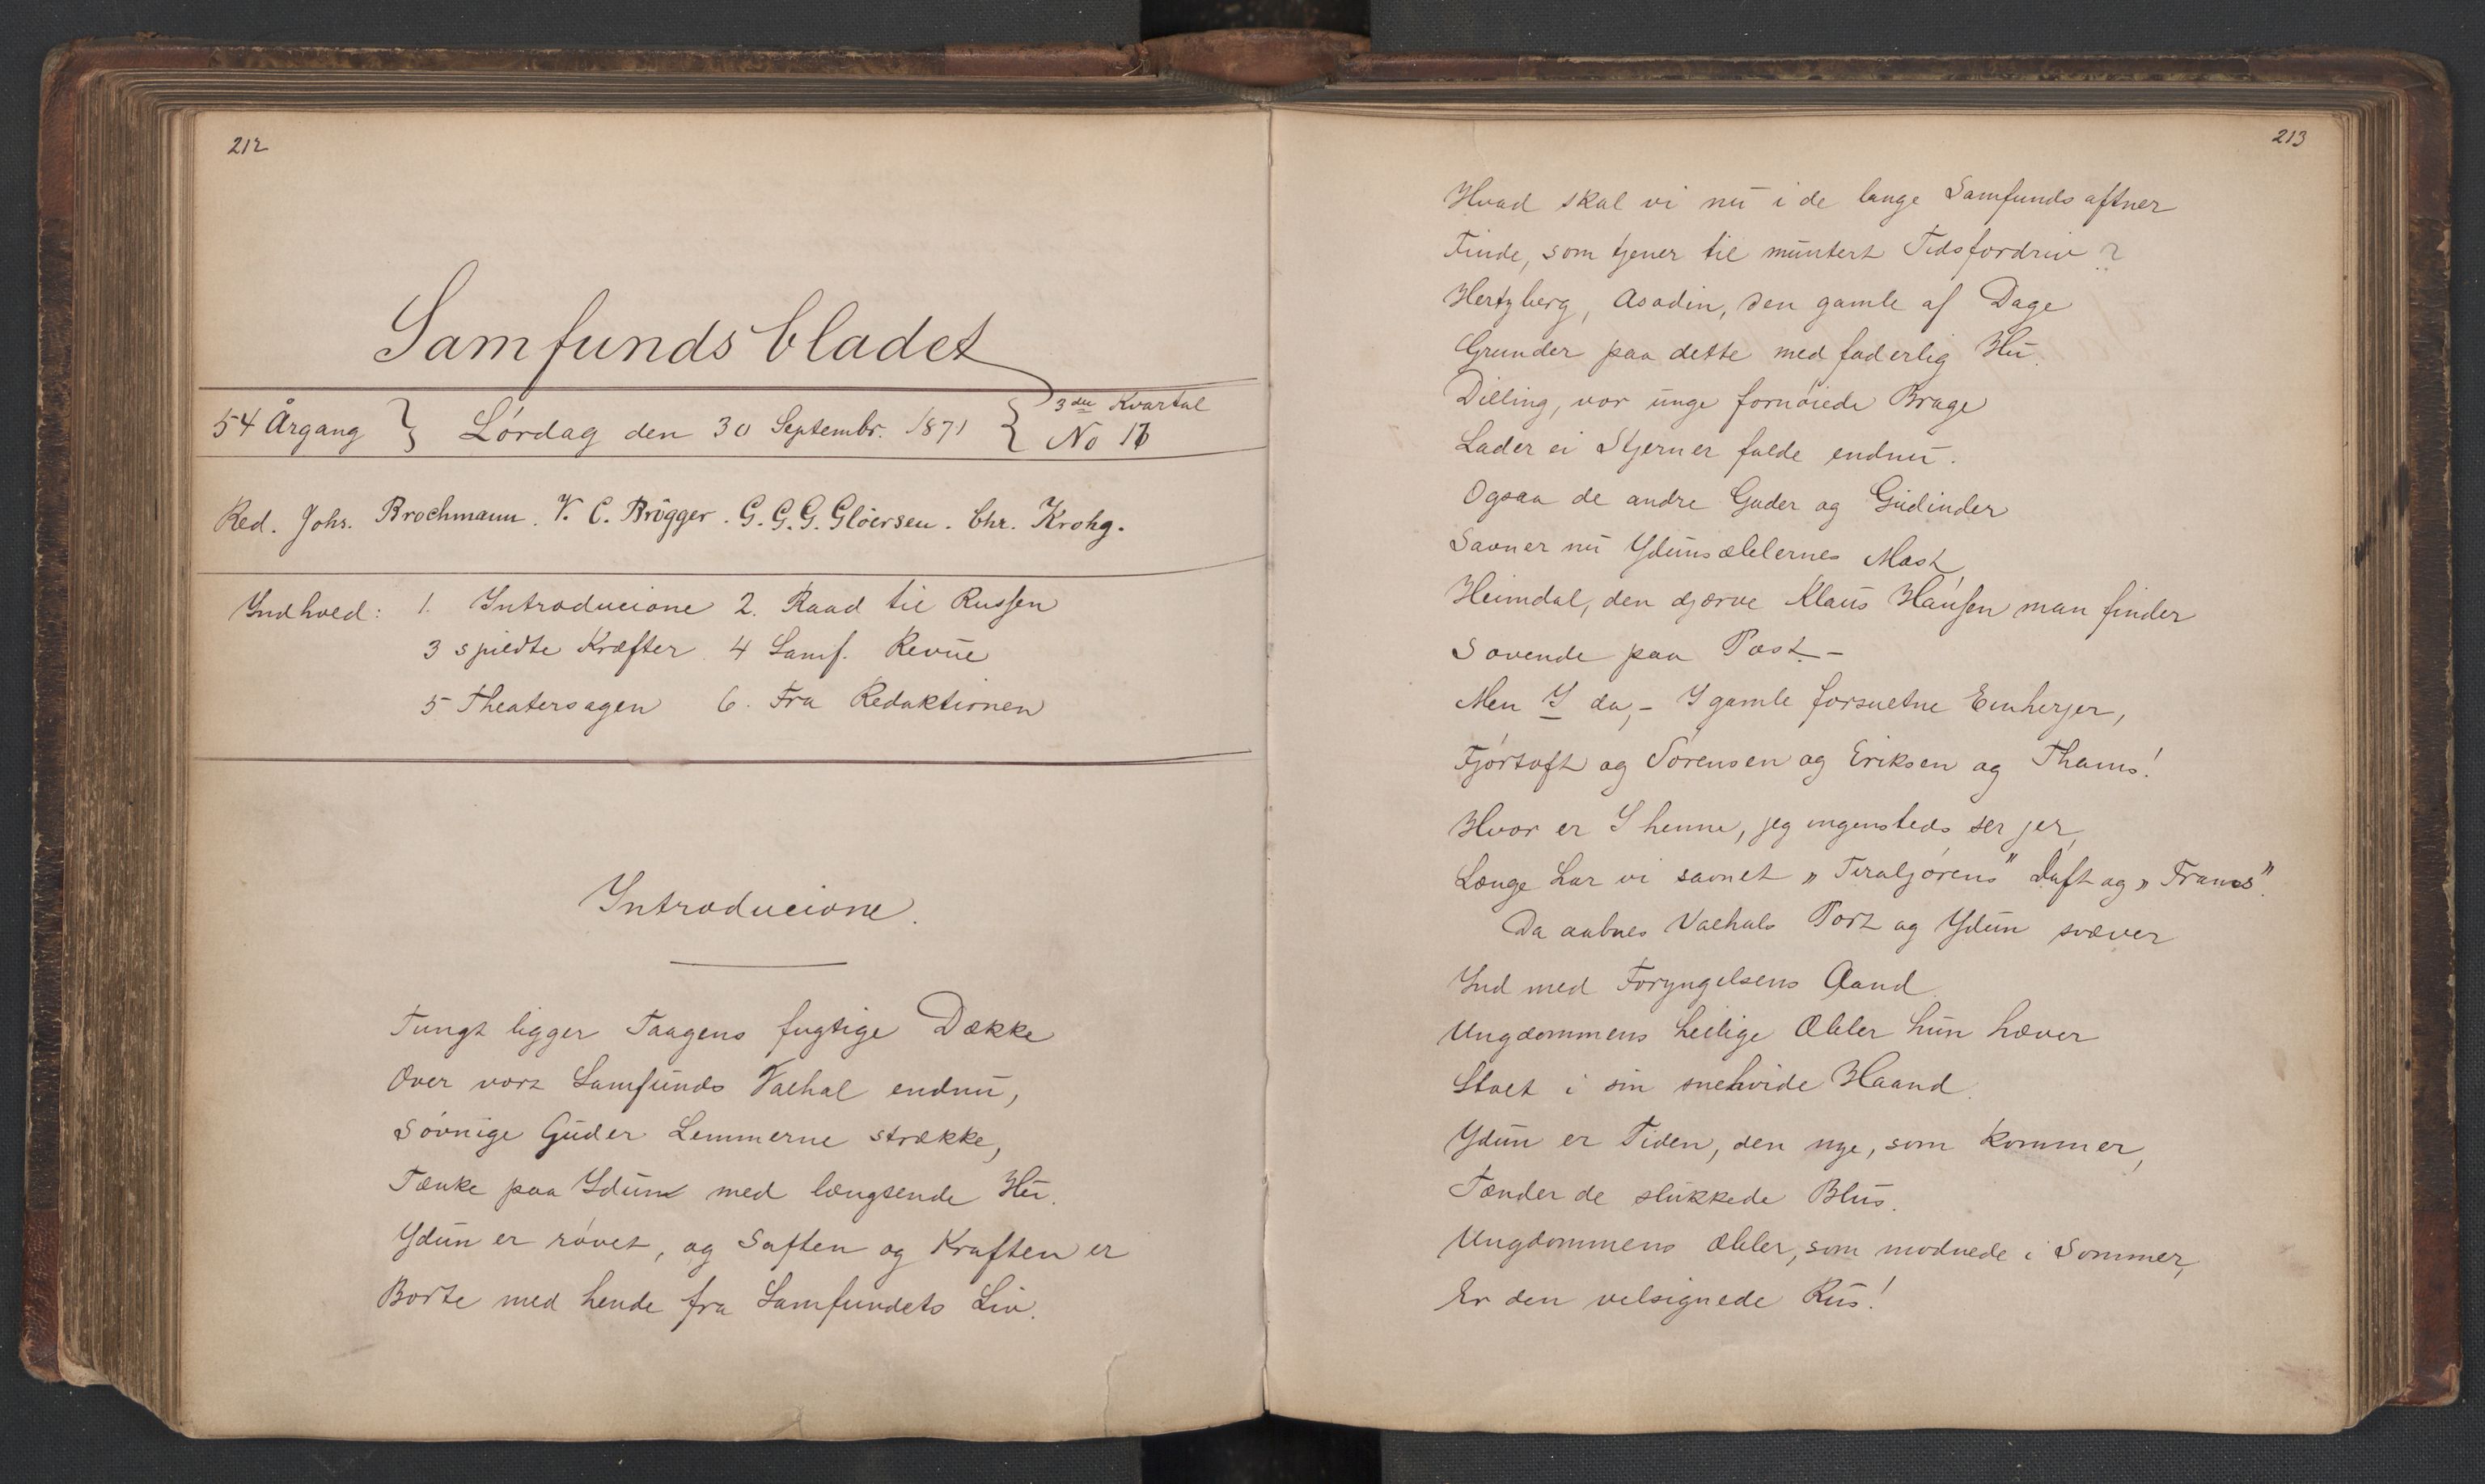 212
Samfundsbladet
54 Årgang } Lørdag den 30 Septembr. 1871 { 3die Kvartal
No 16
Red. Johs. Brochmann. V. C. Brögger. G. G. G. Gløersen. Chr. Krohg.
Yndhold: 1. Introducione 2. Raad til Russen
3 spildte Kræfter. 4 Samf. Revue
5 Theatersagen 6. Fra Redaktionen
Introducione.
Tungt ligger Taagens fugtige Dække
Over vort Samfunds Valhal endnu,
Søvnige Guder Lemmerne strække,
Tænke paa Ydun med længsende Hu.
Ydun er røvet, og Saften og Kraften er
Borte med hende fra Samfundets Liv.
213
Hvad skal vi nu i de lange Samfundsaftner
Finde, som tjener til muntert Tidsfordriv?
Hertzberg, Asaodin, den gamle af Dage
Grunder paa dette med faderlig Hu.
Dilling, vor unge fornøiede Brage
Lader ei Stjerner falde endnu.
Ogsaa de andre Guder og Gudinder
Savner nu Ydunsæblernes Most,
Heimdal, den djærve Klaus Hansen man finder
Sovende paa Post. –
Men I da, – I gamle forsuetne Einherjer,
Fjørtoft og Sørensen og Eriksen og Thams!
Hvor er I henne, jeg ingensteds ser jer,
Længe har vi savnet „Tiraljørens" Duft og „Frams".
Da aabnes Valhals Port og Ydun svæver
Ind med Foryngelsens Aand.
Ungdommens hellige Æbler hun hæver
Stolt i sin snehvide Haand.
Ydun er Tiden, den nye, som kommer,
Tænder de slukkede Blus.
Ungdommens Æbler, som modnede i Sommer,
Er den velsignede Rus!